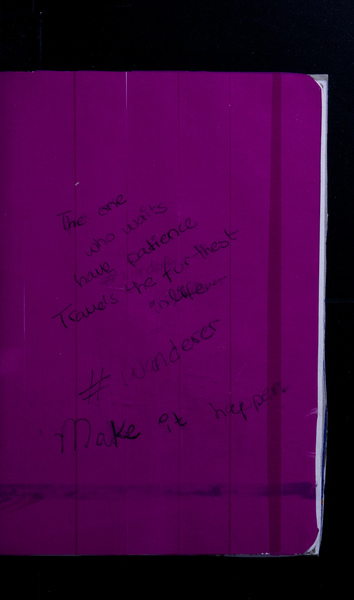 The one
who waits
have patience
Travels the furthest
in life....
# Wanderer
Make it happen